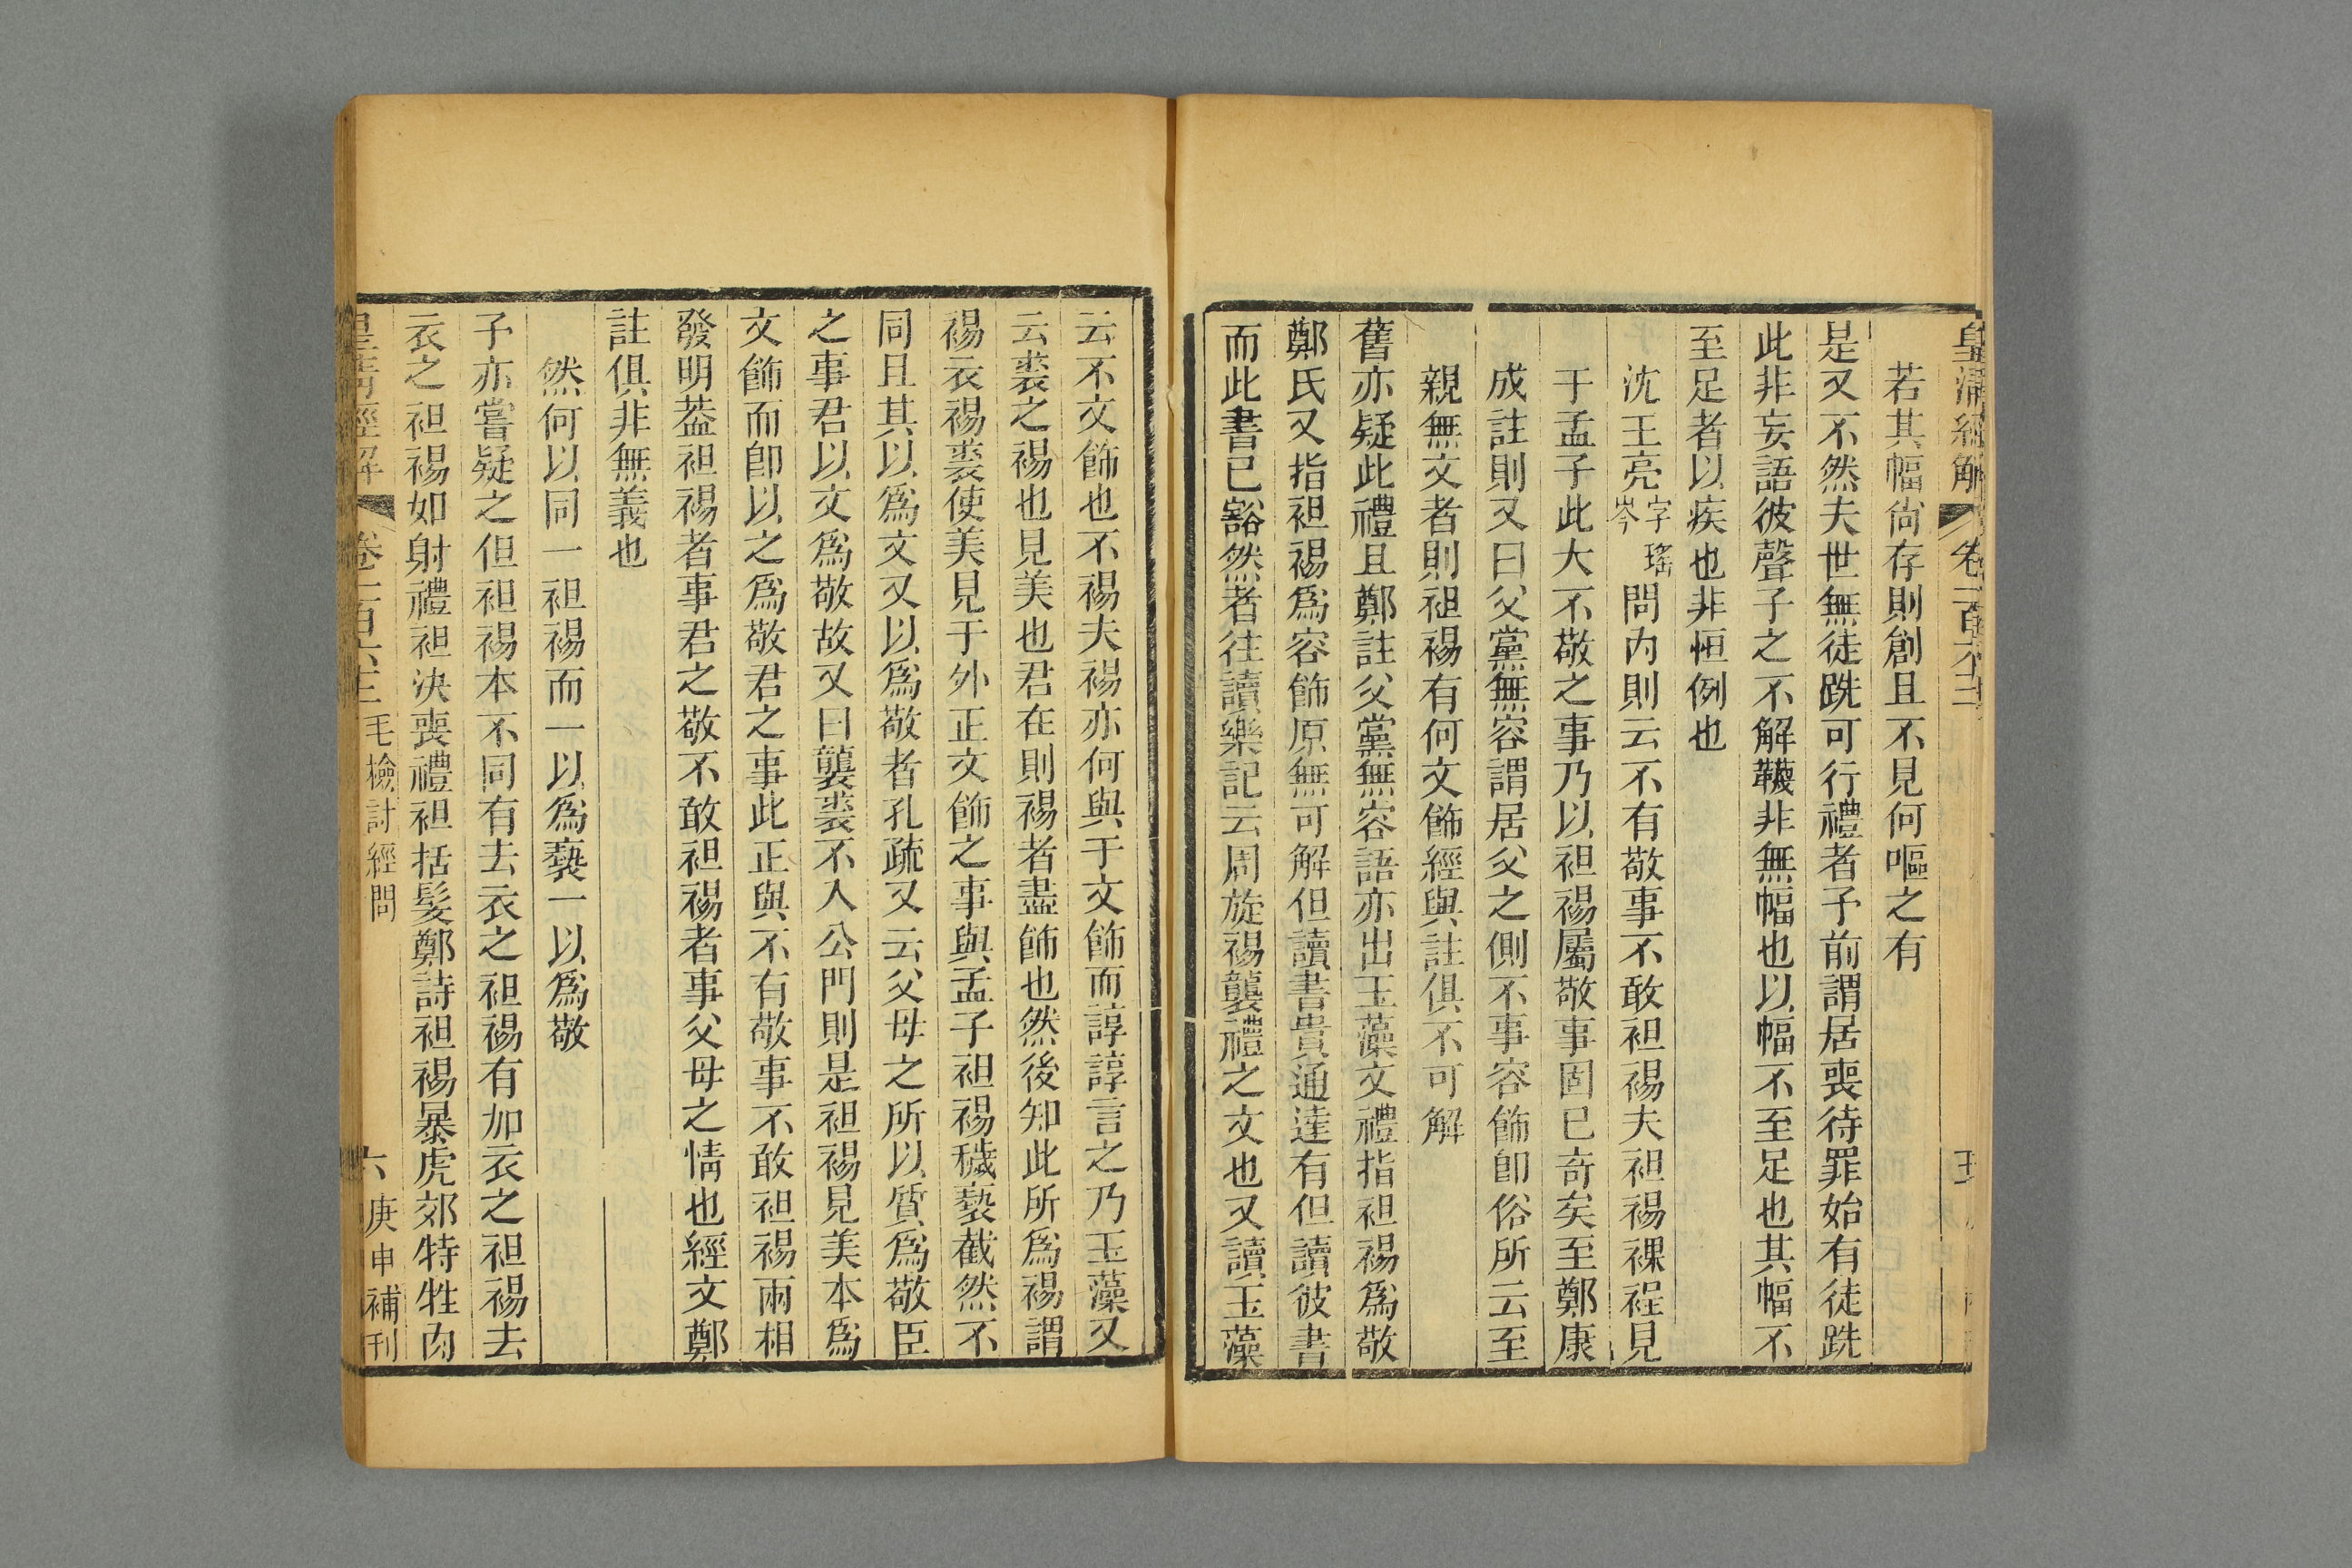 皇清經解 卷一百六十三
若其幅尙存則創且不見何嘔之有
是又不然夫世無徒跣可行禮者予前謂居喪待罪始有徒跣
此非妄語彼聲子之不解韈非無幅也以幅不至足也其幅不
至足者以疾也非恒例也
沈王亮字瑤岑問內則云不有敬事不敢袒裼夫袒裼裸裎見
于孟子此大不敬之事乃以袒裼屬敬事固已奇矣至鄭康
成註則又曰父黨無容謂居父之側不事容飾卽俗所云至
親無文者則袒裼有何文飾經與註俱不可解
舊亦疑此禮且鄭註父黨無容語亦出玉藻文禮指袒裼爲敬
鄭氏又指袒裼爲容飾原無可解但讀書貴通達有但讀彼書
而此書已豁然者往讀樂記云周旋裼襲禮之文也又讀玉藻
云不文飾也不裼夫裼亦何與于文飾而諄諄言之乃玉藻又
云裘之裼也見美也君在則裼者盡飾也然後知此所爲裼謂
裼衣裼裘使美見于外正文飾之事與孟子袒裼穢褻截然不
同且其以爲文又以爲敬者孔疏又云父母之所以質爲敬臣
之事君以文爲敬故又曰襲裘不入公門則是袒裼見美本爲
文飾而卽以之爲敬君之事此正與不有敬事不敢袒裼兩相
發明葢袒裼者事君之敬不敢袒裼者事父母之情也經文鄭
註俱非無義也
然何以同一袒裼而一以爲褻一以爲敬
子亦嘗疑之但袒裼本不同有去衣之袒裼有加衣之袒裼去
衣之袒裼如射禮袒決喪禮袒括髮鄭詩袒裼暴虎郊特牲肉
皇清經解 卷一百六十三 毛檢討經問 六 庚申補刊